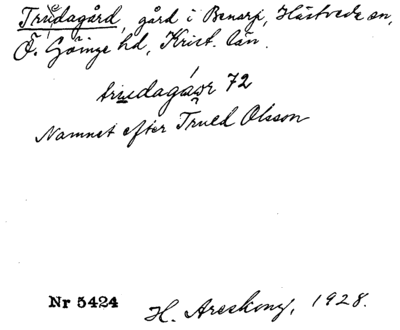 Trudagård, gård i Benarp, Hästveda sn,
Ö. Göinge hd, Krist. län.
trudagaɔr 72
Namnet efter Truld Olsson
Nr 5424 H. Areskoug, 1928.